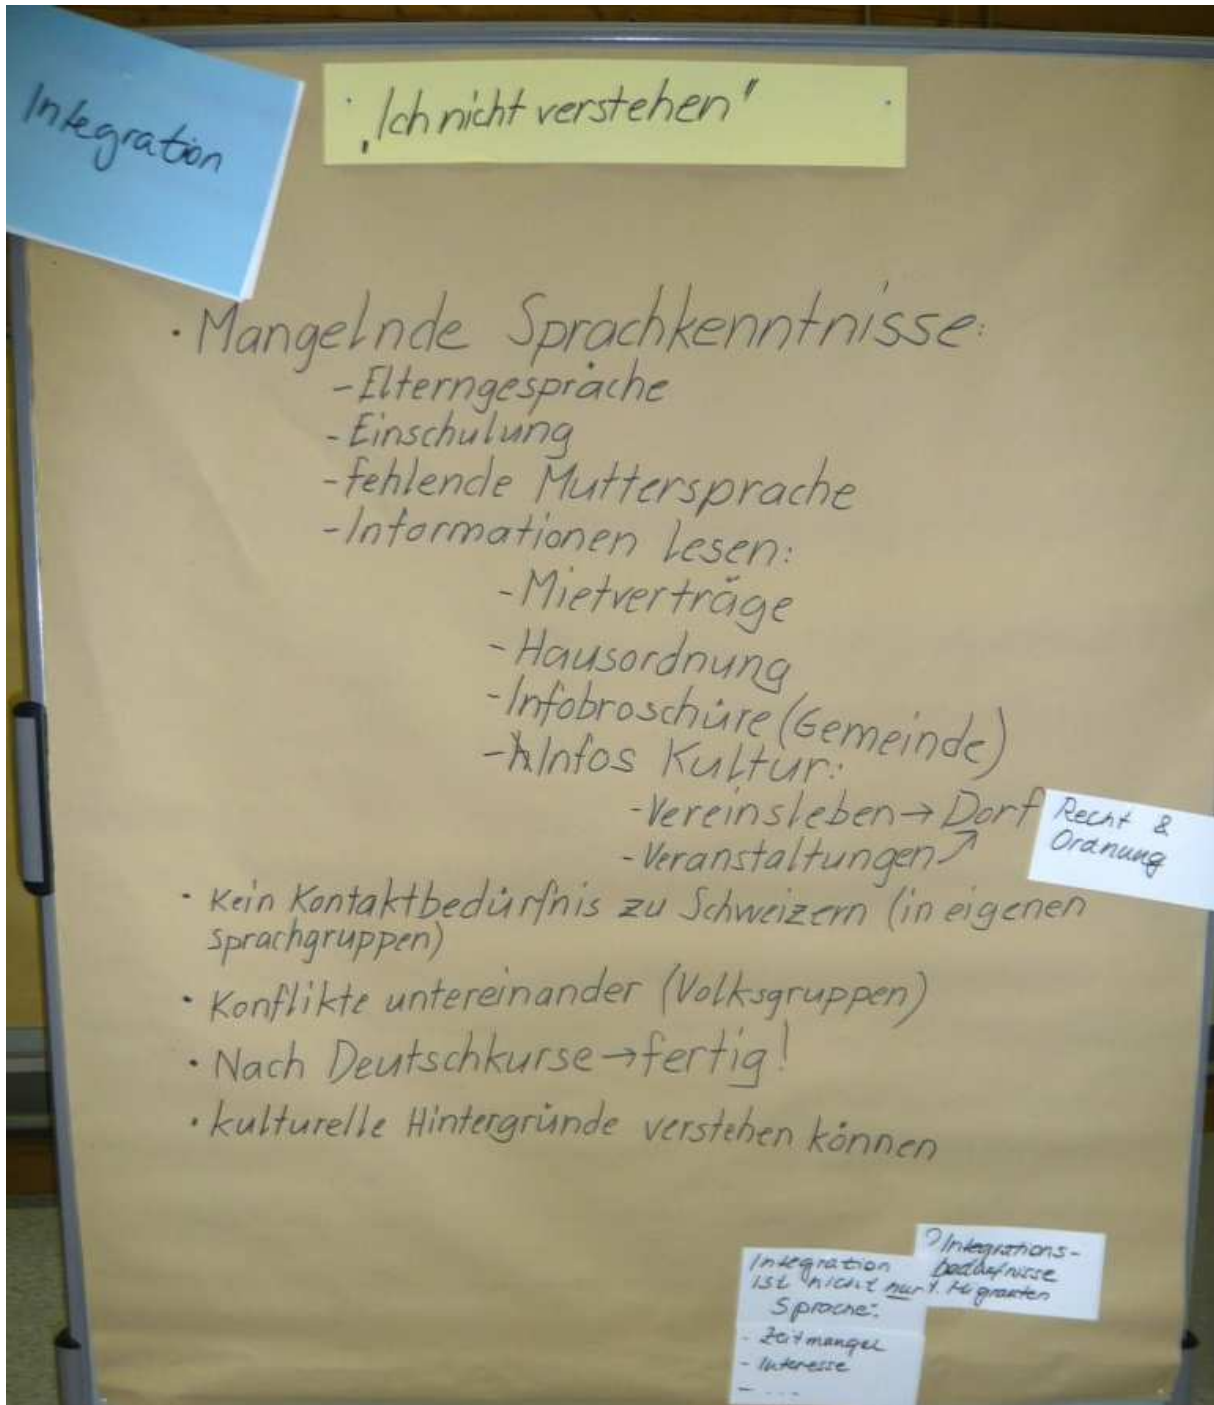 Integration
„Ich nicht verstehen"
• Mangelnde Sprachkenntnisse:
- Elterngespräche
- Einschulung
- fehlende Muttersprache
- Informationen lesen:
- Mietverträge
- Hausordnung
- Infobroschüre (Gemeinde)
- Infos Kultur:
- Vereinsleben → Dorf
- Veranstaltungen ↗
Recht &
Ordnung
• Kein Kontaktbedürfnis zu Schweizern (in eigenen
Sprachgruppen)
• Konflikte untereinander (Volksgruppen)
• Nach Deutschkurse → fertig!
• kulturelle Hintergründe verstehen können
Integration
ist nicht nur
Sprache:
- Zeitmangel
- Interesse
- ...
? Integrations-
bedürfnisse
f. Migranten